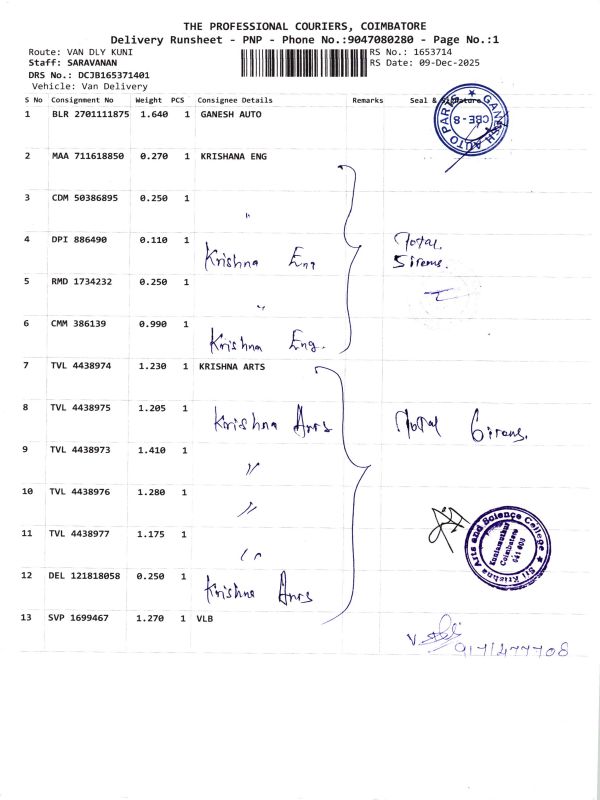 THE PROFESSIONAL COURIERS, COIMBATORE
Delivery Runsheet - PNP - Phone No.:9047080280 - Page No.:1
Route: VAN DLY KUNI
RS No.: 1653714
Staff: SARAVANAN
RS Date: 09-Dec-2025
DRS No.: DCJB165371401
Vehicle: Van Delivery
S No Consignment No Weight PCS Consignee Details Remarks Seal & Signature
GANESH AUTO PARTS CBE - 8
1 BLR 2701111875 1.640 1 GANESH AUTO
2 MAA 711618850 0.270 1 KRISHANA ENG
3 CDM 50386895 0.250 1 "
4 DPI 886490 0.110 1 Krishna Eng Total
5 items.
5 RMD 1734232 0.250 1 "
6 CMM 386139 0.990 1 Krishna Eng.
7 TVL 4438974 1.230 1 KRISHNA ARTS
8 TVL 4438975 1.205 1 Krishna Arts Total 6 items.
9 TVL 4438973 1.410 1 "
10 TVL 4438976 1.280 1 "
11 TVL 4438977 1.175 1 "
Sri Krishna Arts and Science College
Kuniamuthur
Coimbatore
641 008
12 DEL 121818058 0.250 1 Krishna Arts
13 SVP 1699467 1.270 1 VLB
9171477708